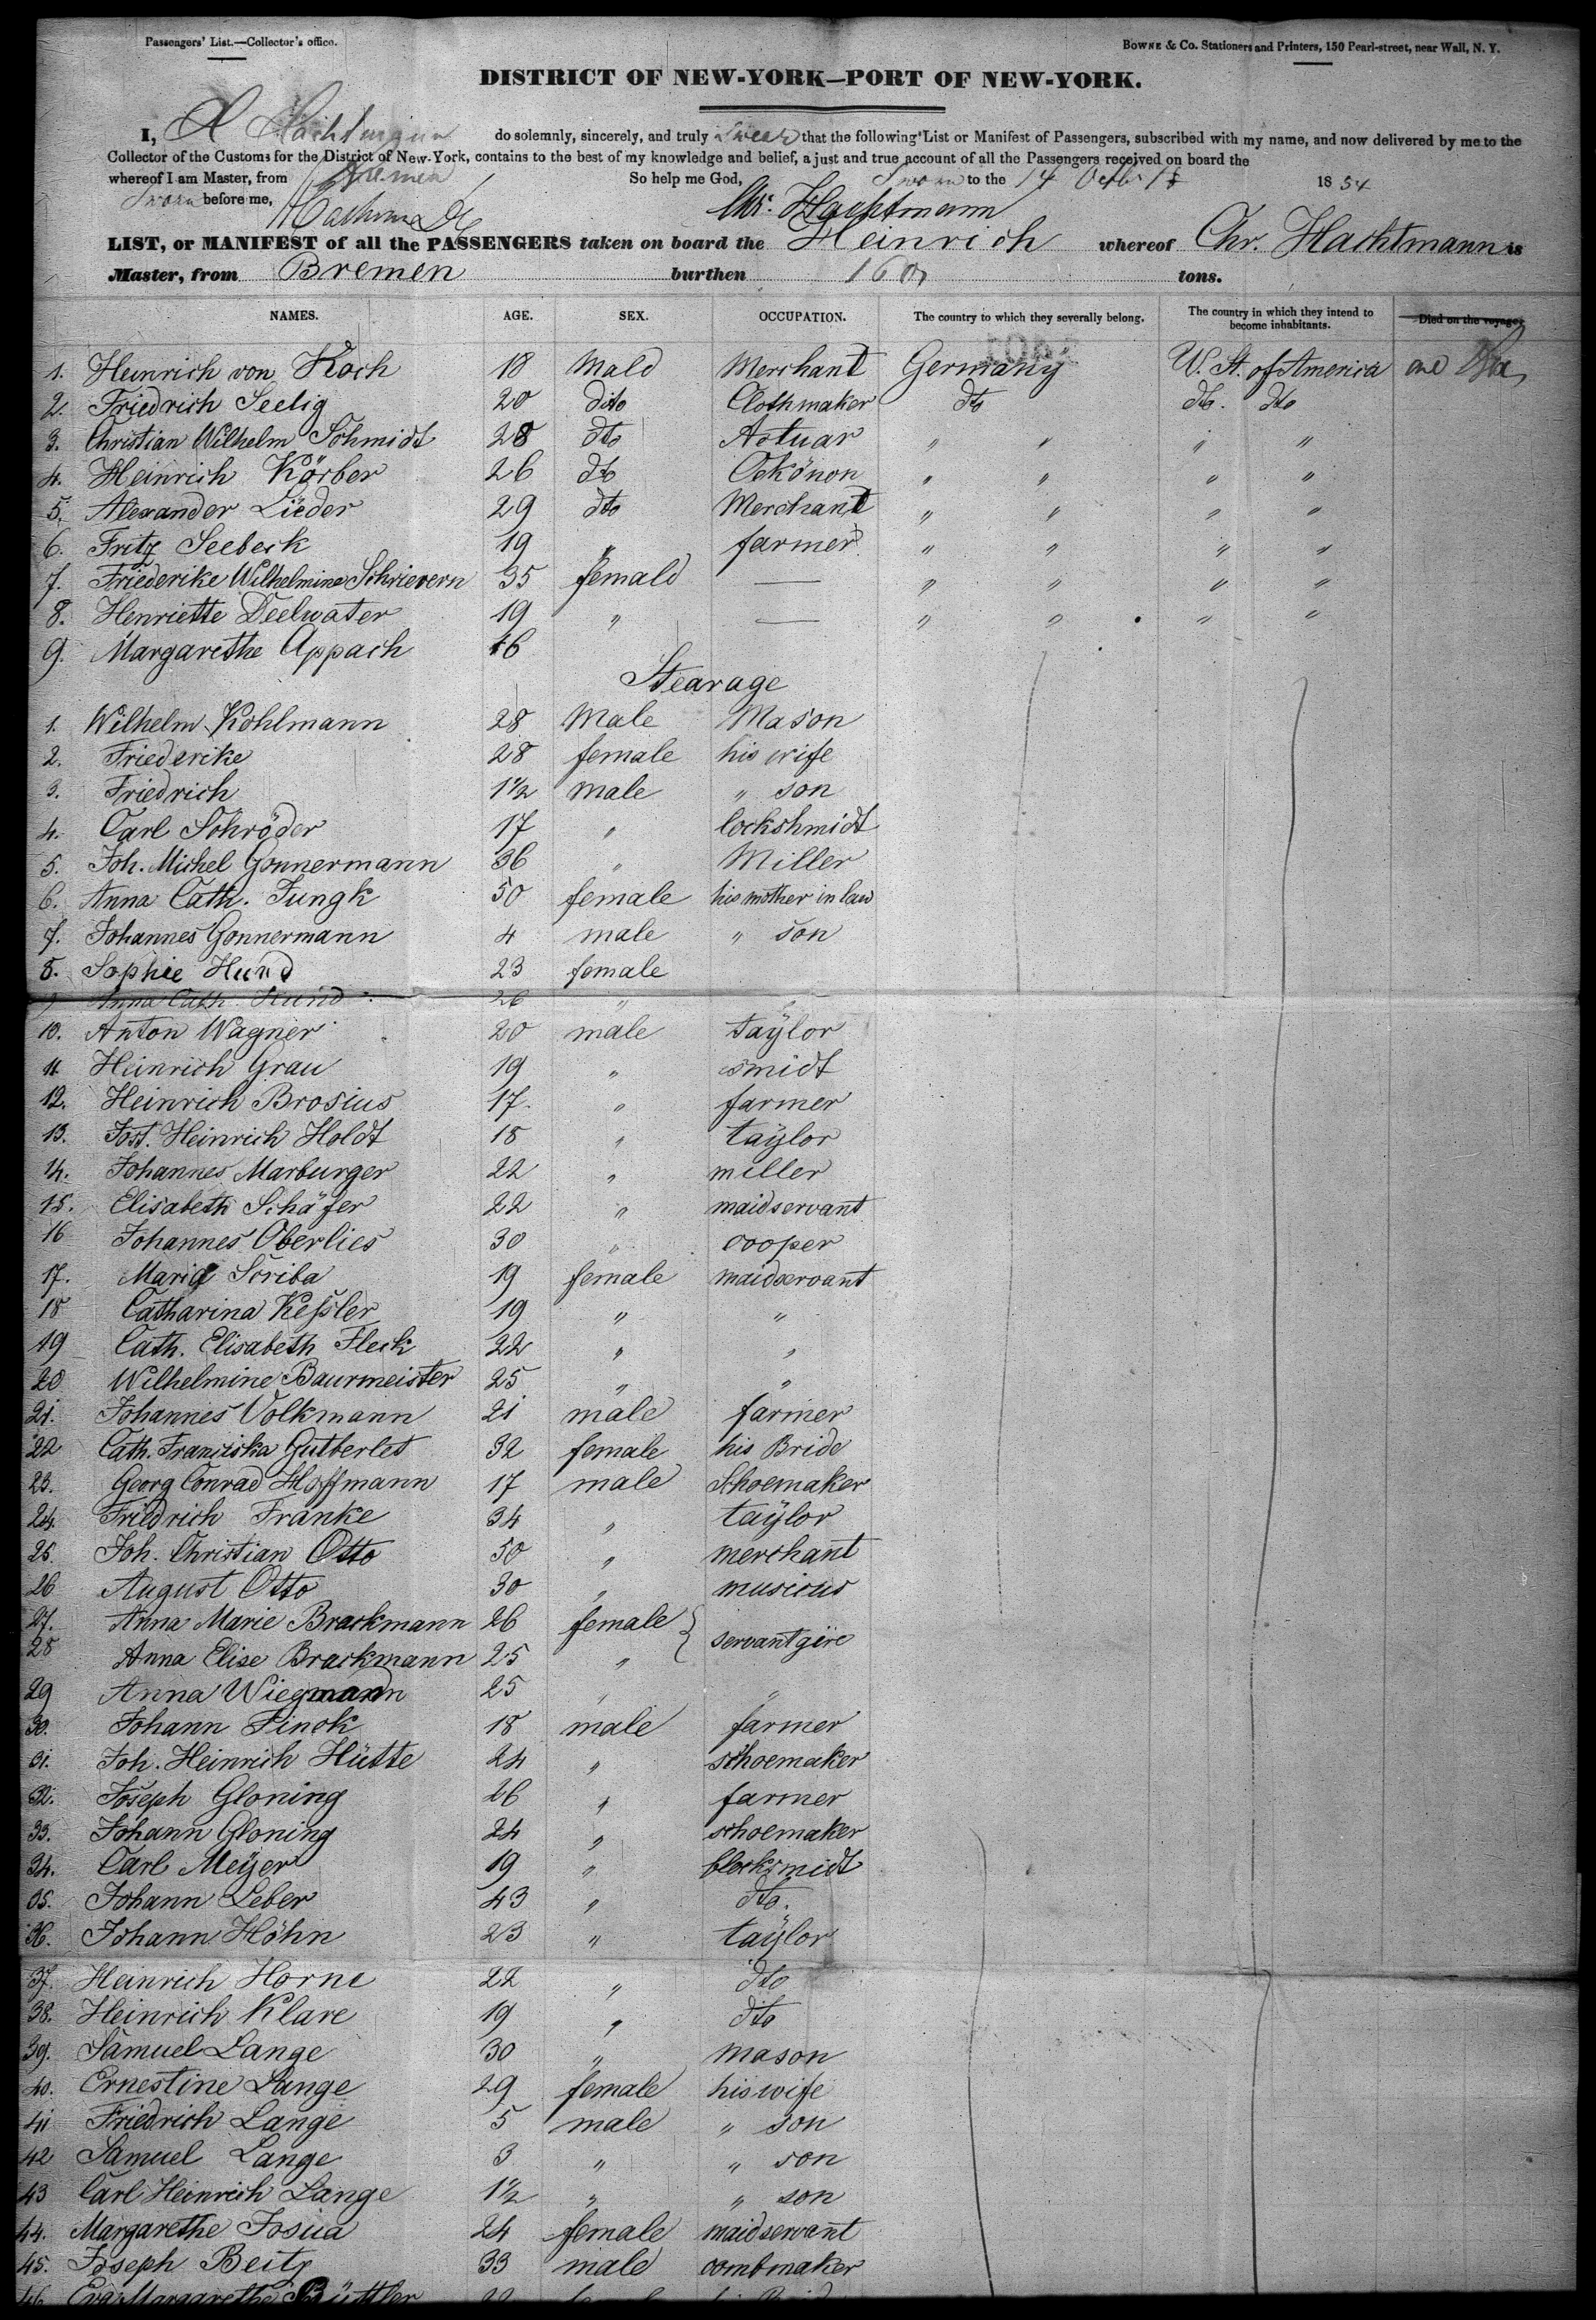 Passengers' List.—Collector's office.
BOWNE & Co. Stationers and Printers, 150 Pearl-street, near Wall, N. Y.
DISTRICT OF NEW-YORK—PORT OF NEW-YORK.
I, C Hachtmann do solemnly, sincerely, and truly swear that the following List or Manifest of Passengers, subscribed with my name, and now delivered by me to the
Collector of the Customs for the District of New-York, contains to the best of my knowledge and belief, a just and true account of all the Passengers received on board the
whereof I am Master, from Bremen So help me God, Sworn to the 14 Octbr 1854
Sworn before me, Chr. Hachtmann
LIST, or MANIFEST of all the PASSENGERS taken on board the Heinrich whereof Chr. Hachtmann is
Master, from Bremen burthen 160 tons.
NAMES. AGE. SEX. OCCUPATION. The country to which they severally belong. The country in which they intend to become inhabitants. Died on the voyage.
1. Heinrich von Koch 18 Male Merchant Germany U. St. of America
2. Friedrich Seelig 20 dito Clothmaker dto dto. dto
3. Christian Wilhelm Schmidt 28 dto Actuar " " " "
4. Heinrich Körber 26 dto Oekönon " " " "
5. Alexander Lieder 29 dto Merchant " " " "
6. Fritz Seebeck 19 " farmer " " " "
7. Friederike Wilhelmine Schrievern 35 female — " " " "
8. Henriette Deelwater 19 " — " " " "
9. Margarethe Appach 16
Stearage
1. Wilhelm Kohlmann 28 Male Mason
2. Friederike 28 female his wife
3. Friedrich 1 1/2 male " son
4. Carl Schröder 17 " lockshmidt
5. Joh. Michel Gonnermann 36 " Miller
6. Anna Cath. Jungk 50 female his mother in law
7. Johannes Gonnermann 4 male " son
8. Sophie Hund 23 female
9 Anna Cath. Hund 26 "
10. Anton Wagner 20 male taylor
11 Heinrich Grau 19 " smidt
12. Heinrich Brosius 17. " farmer
13. Jost. Heinrich Holdt 18 " taylor
14. Johannes Marburger 22 " miller
15. Elisabeth Schäfer 22 " maidservant
16 Johannes Oberlies 30 " cooper
17. Maria Scriba 19 female maidservant
18 Catharina Keßler 19 " "
19 Cath. Elisabeth Fleck 22 " "
20 Wilhelmine Baurmeister 25 " "
21. Johannes Volkmann 21 male farmer
22 Cath. Franciska Gutberlet 32 female his Bride
23. Georg Conrad Hoffmann 17 male Shoemaker
24. Friedrich Franke 34 " taylor
25. Joh. Christian Otto 50 " merchant
26 August Otto 30 " musicus
27. Anna Marie Brackmann 26 female
servantgire
28 Anna Elise Brackmann 25 "
29 Anna Wiegmann 25 " "
30. Johann Finck 18 male farmer
31. Joh. Heinrich Hütte 24 " schoemaker
32. Joseph Gloning 26 " farmer
33. Johann Gloning 24 " schoemaker
34. Carl Meyer 19 " blocksmidt
35. Johann Leber 43 " dto.
36. Johann Höhn 23 " taylor
37. Heinrich Horne 22 " dto
38. Heinrich Klare 19 " dto
39. Samuel Lange 30 " mason
40. Ernestine Lange 29 female his wife
41 Friedrich Lange 5 male " son
42 Samuel Lange 3 " " son
43 Carl Heinrich Lange 1 1/2 " " son
44. Margarethe Josua 24 female maidservant
45. Joseph Beitz 33 male combmaker
46. Eva Margarethe Büttler